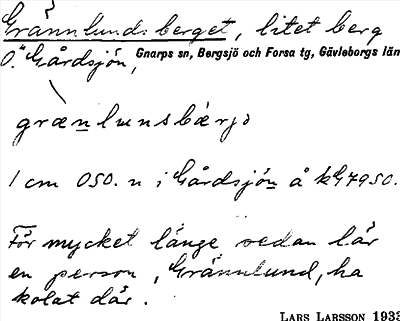 Grännlundsberget, litet berg
O. Gårdsjön, Gnarps sn, Bergsjö och Forsa tg, Gävleborgs län
grænlunsbærjə
1 cm OSO. n i Gårdsjön å kG7950.
För mycket länge sedan lär
en person, Grännlund, ha
kolat där.
LARS LARSSON 1933